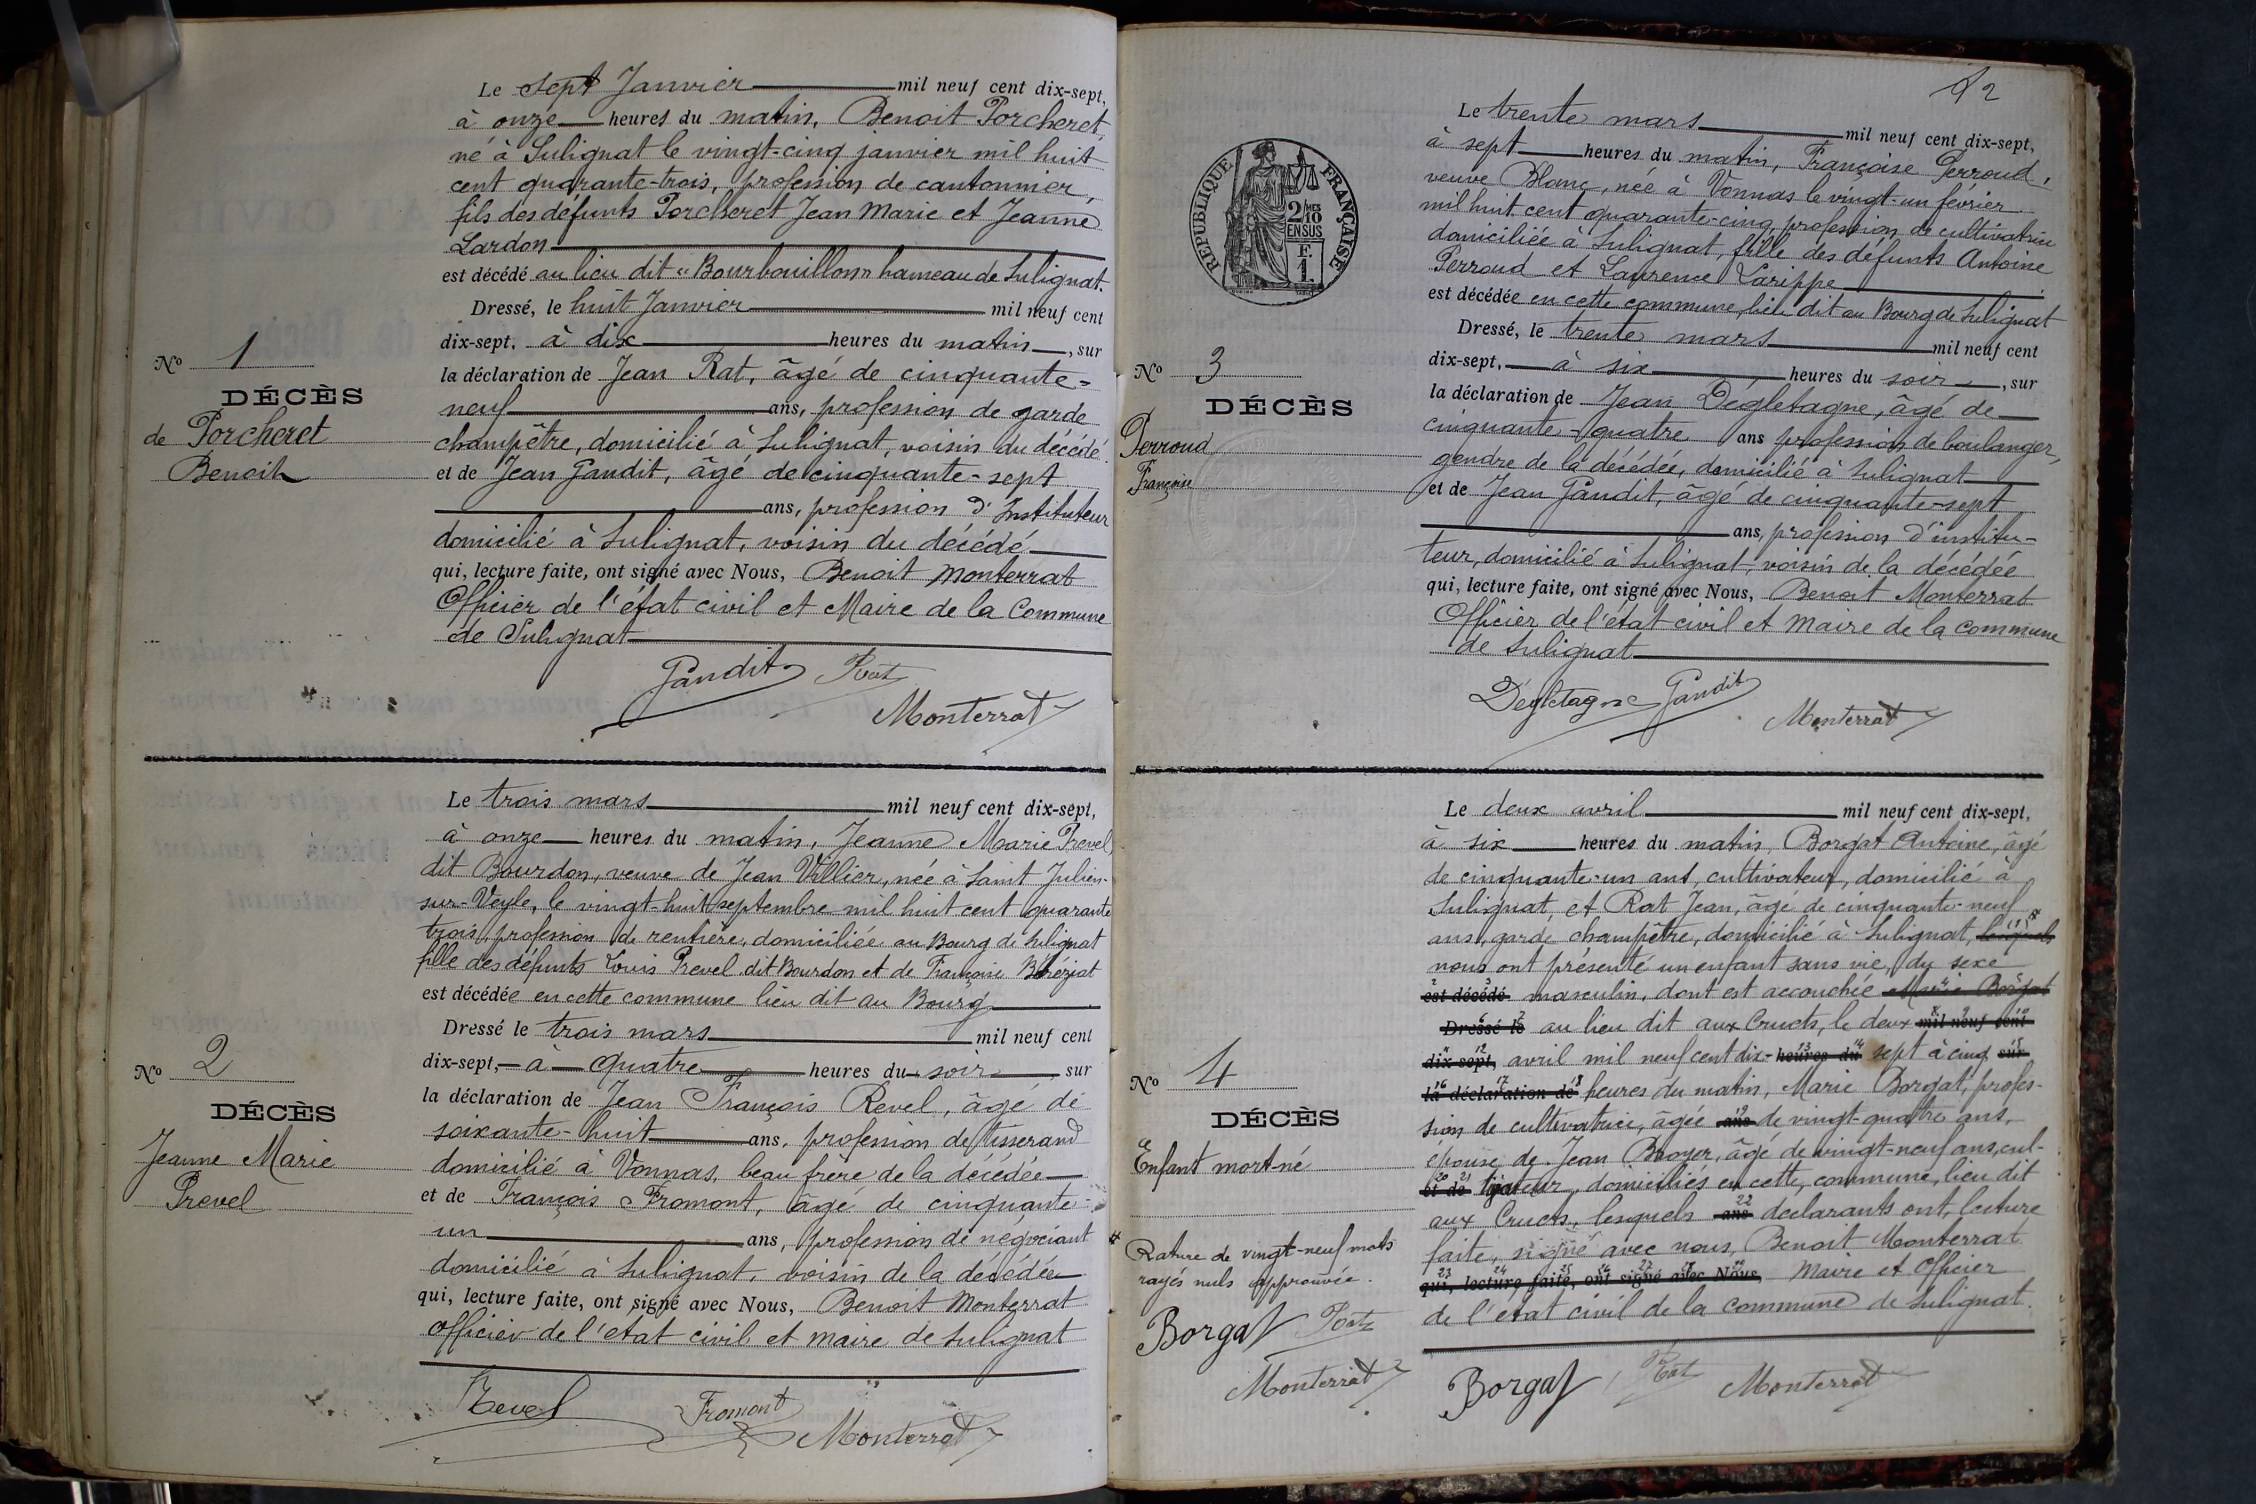 Le sept Janvier mil neuf cent dix-sept,
à onze heures du matin, Benoit Porcheret,
né à Sulignat le vingt-cinq janvier mil huit
cent quarante-trois, profession de cantonnier,
fils des défunts Porcheret Jean Marie et Jeanne
Lardon
est décédé au lieu dit "Bourbouillon" hameau de Sulignat.
Dressé, le huit Janvier mil neuf cent
dix-sept, à dix heures du matin, sur
la déclaration de Jean Rat, âgé de cinquante-
neuf ans, profession de garde
champêtre, domicilié à Sulignat, voisin du décédé
et de Jean Gandit, âgé de cinquante-sept
ans, profession d'Instituteur
domicilié à Sulignat, voisin du décédé
qui, lecture faite, ont signé avec Nous, Benoit Monterrat
Officier de l'état civil et Maire de la Commune
de Sulignat
Gandit Rat
Monterrat
No 1
DÉCÈS
de Porcheret
Benoit
Le trois mars mil neuf cent dix-sept,
à onze heures du matin, Jeanne Marie Prevel,
dit Bourdon, veuve de Jean Villier, née à Saint Julien-
sur-Veyle, le vingt-huit septembre mil huit cent quarante
trois, profession de rentière, domiciliée au Bourg de Sulignat
fille des défunts Louis Prevel dit Bourdon et de Françoise Béréziat
est décédée en cette commune lieu dit au Bourg
Dressé le trois mars mil neuf cent
dix-sept, à quatre heures du soir, sur
la déclaration de Jean François Revel, âgé de
soixante-huit ans, profession de tisserand
domicilié à Vonnas, beau frère de la décédée
et de François Fromont, âgé de cinquante-
un ans, profession de négociant
domicilié à Sulignat, voisin de la décédée
qui, lecture faite, ont signé avec Nous, Benoit Monterrat
officier de l'état civil et maire de Sulignat
Revel Fromont Monterrat
No 2
DÉCÈS
Jeanne Marie
Prevel
82
RÉPUBLIQUE FRANÇAISE
2/10 MES
EN SUS
F.
1.
Le trente mars mil neuf cent dix-sept,
à sept heures du matin, Françoise Perroud,
veuve Blanc, née à Vonnas le vingt-un février
mil huit cent quarante-cinq, profession de cultivatrice
domiciliée à Sulignat, fille des défunts Antoine
Perroud et Laurence Larippe
est décédée en cette commune, lieu dit au Bourg de Sulignat
Dressé, le trente mars mil neuf cent
dix-sept, à six heures du soir, sur
la déclaration de Jean Dégletagne, âgé de
cinquante-quatre ans profession de boulanger,
gendre de la décédée, domicilié à Sulignat
et de Jean Gandit, âgé de cinquante-sept
ans, profession d'institu-
teur, domicilié à Sulignat, voisin de la décédée
qui, lecture faite, ont signé avec Nous, Benoit Monterrat
Officier de l'état civil et maire de la commune
de Sulignat
Dégletagne Gandit Monterrat
No 3
DÉCÈS
Perroud
Françoise
Le deux avril mil neuf cent dix-sept,
à six heures du matin, Borgat Antoine, âgé
de cinquante-un ans, cultivateur, domicilié à
Sulignat, et Rat Jean, âgé de cinquante-neuf
ans, garde champêtre, domicilié à Sulignat, lesquels
nous ont présenté un enfant sans vie, du sexe
est décédé masculin, dont est accouchée Marie Borgat
Dressé le au lieu dit aux Cructs, le deux mil neuf cent
dix-sept, avril mil neuf cent dix- heures du sept à cinq sur
la déclaration de heures du matin, Marie Borgat, profes-
sion de cultivatrice, âgée ans de vingt-quatre ans,
épouse de Jean Broyer, âgé de vingt-neuf ans, cul-
et de tivateur, domiciliés en cette, commune, lieu dit
aux Cructs, lesquels ans déclarants ont, lecture
faite, signé avec nous, Benoit Monterrat
qui, lecture faite, ont signé avec Nous, Maire et Officier
de l'état civil de la commune de Sulignat.
Borgat Rat Monterrat
No 4
DÉCÈS
Enfant mort-né
Rature de vingt-neuf mots
rayés nuls approuvée.
Borgat Rat
Monterrat